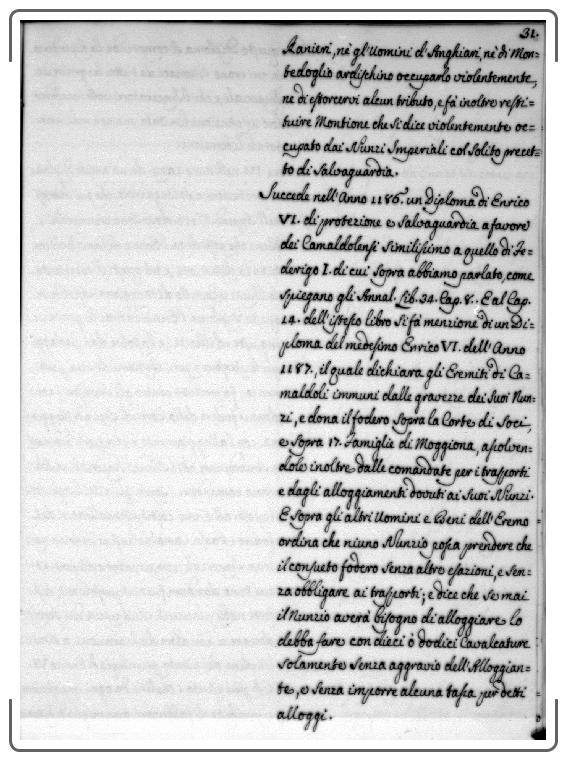 31.
Ranieri, nè gl'Uomini d'Anghiari, nè di Mon=
tedoglio ardischino occuparlo violentemente,
ne di estorcervi alcun tributo, e fà inoltre resti=
tuire Montione che si dice violentemente oc=
cupato dai Nunzi Imperiali col solito precet=
to di Salvaguardia.
Succede nell'Anno 1186. un Diploma di Enrico
VI. di protezione e Salvaguardia a favore
dei Camaldolensi similissimo a quello di Fe=
derigo I. di cui sopra abbiamo parlato, come
spiegano gli Annal. Lib. 34. Cap. 8. E al Cap.
14. dell'istesso libro si fà menzione di un Di=
ploma del medesimo Enrico VI. dell'Anno
1187., il quale dichiara gli Eremiti di Ca=
maldoli immuni dalle gravezze dei suoi Nun=
zi, e dona il fodero sopra la Corte di Soci,
e sopra 17. Famiglie di Moggiona, asolven=
dole inoltre dalle comandate per i trasporti
e dagli alloggiamenti dovuti ai suoi Nunzi.
E sopra gli altri Uomini e Beni dell'Eremo
ordina che niuno Nunzio possa prendere che
il consueto fodero senza altre esazioni, e sen=
za obbligare ai trasporti; e dice che se mai
il Nunzio averà bisogno di alloggiare lo
debba fare con dieci ò dodici Cavalcature
solamente senza aggravio dell'Alloggian=
te, e senza imporre alcuna tassa per detti
alloggi.